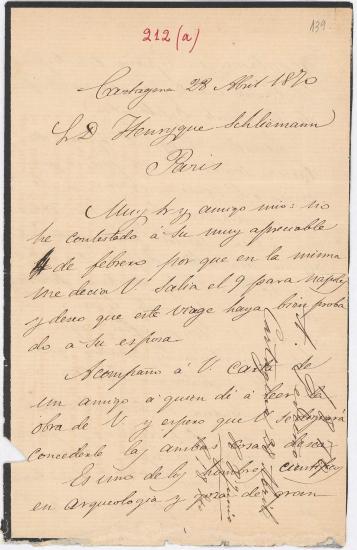 212 (a)
139.
Cartagena 28 Abril 1870
S D Henryque Schliemann
Paris
Muy Sr y amigo mio: no
he contestado á su muy apreciable
de febrero por que en la misma
me decia V. salia el 9 para Napoles
y deseo que este viage haya bien proba
do a su esposa.
Acompaño á V. carta de
un amigo a quien di á leer la
obra de V. y espero que V. se dignará
concederle las
Es uno de los hombres cientificos
en Arqueología y goza de gran
Cartagena 28 Abril